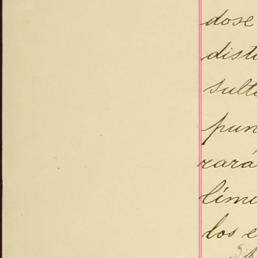 dose
dist
sult
pun
rará
lími
los e